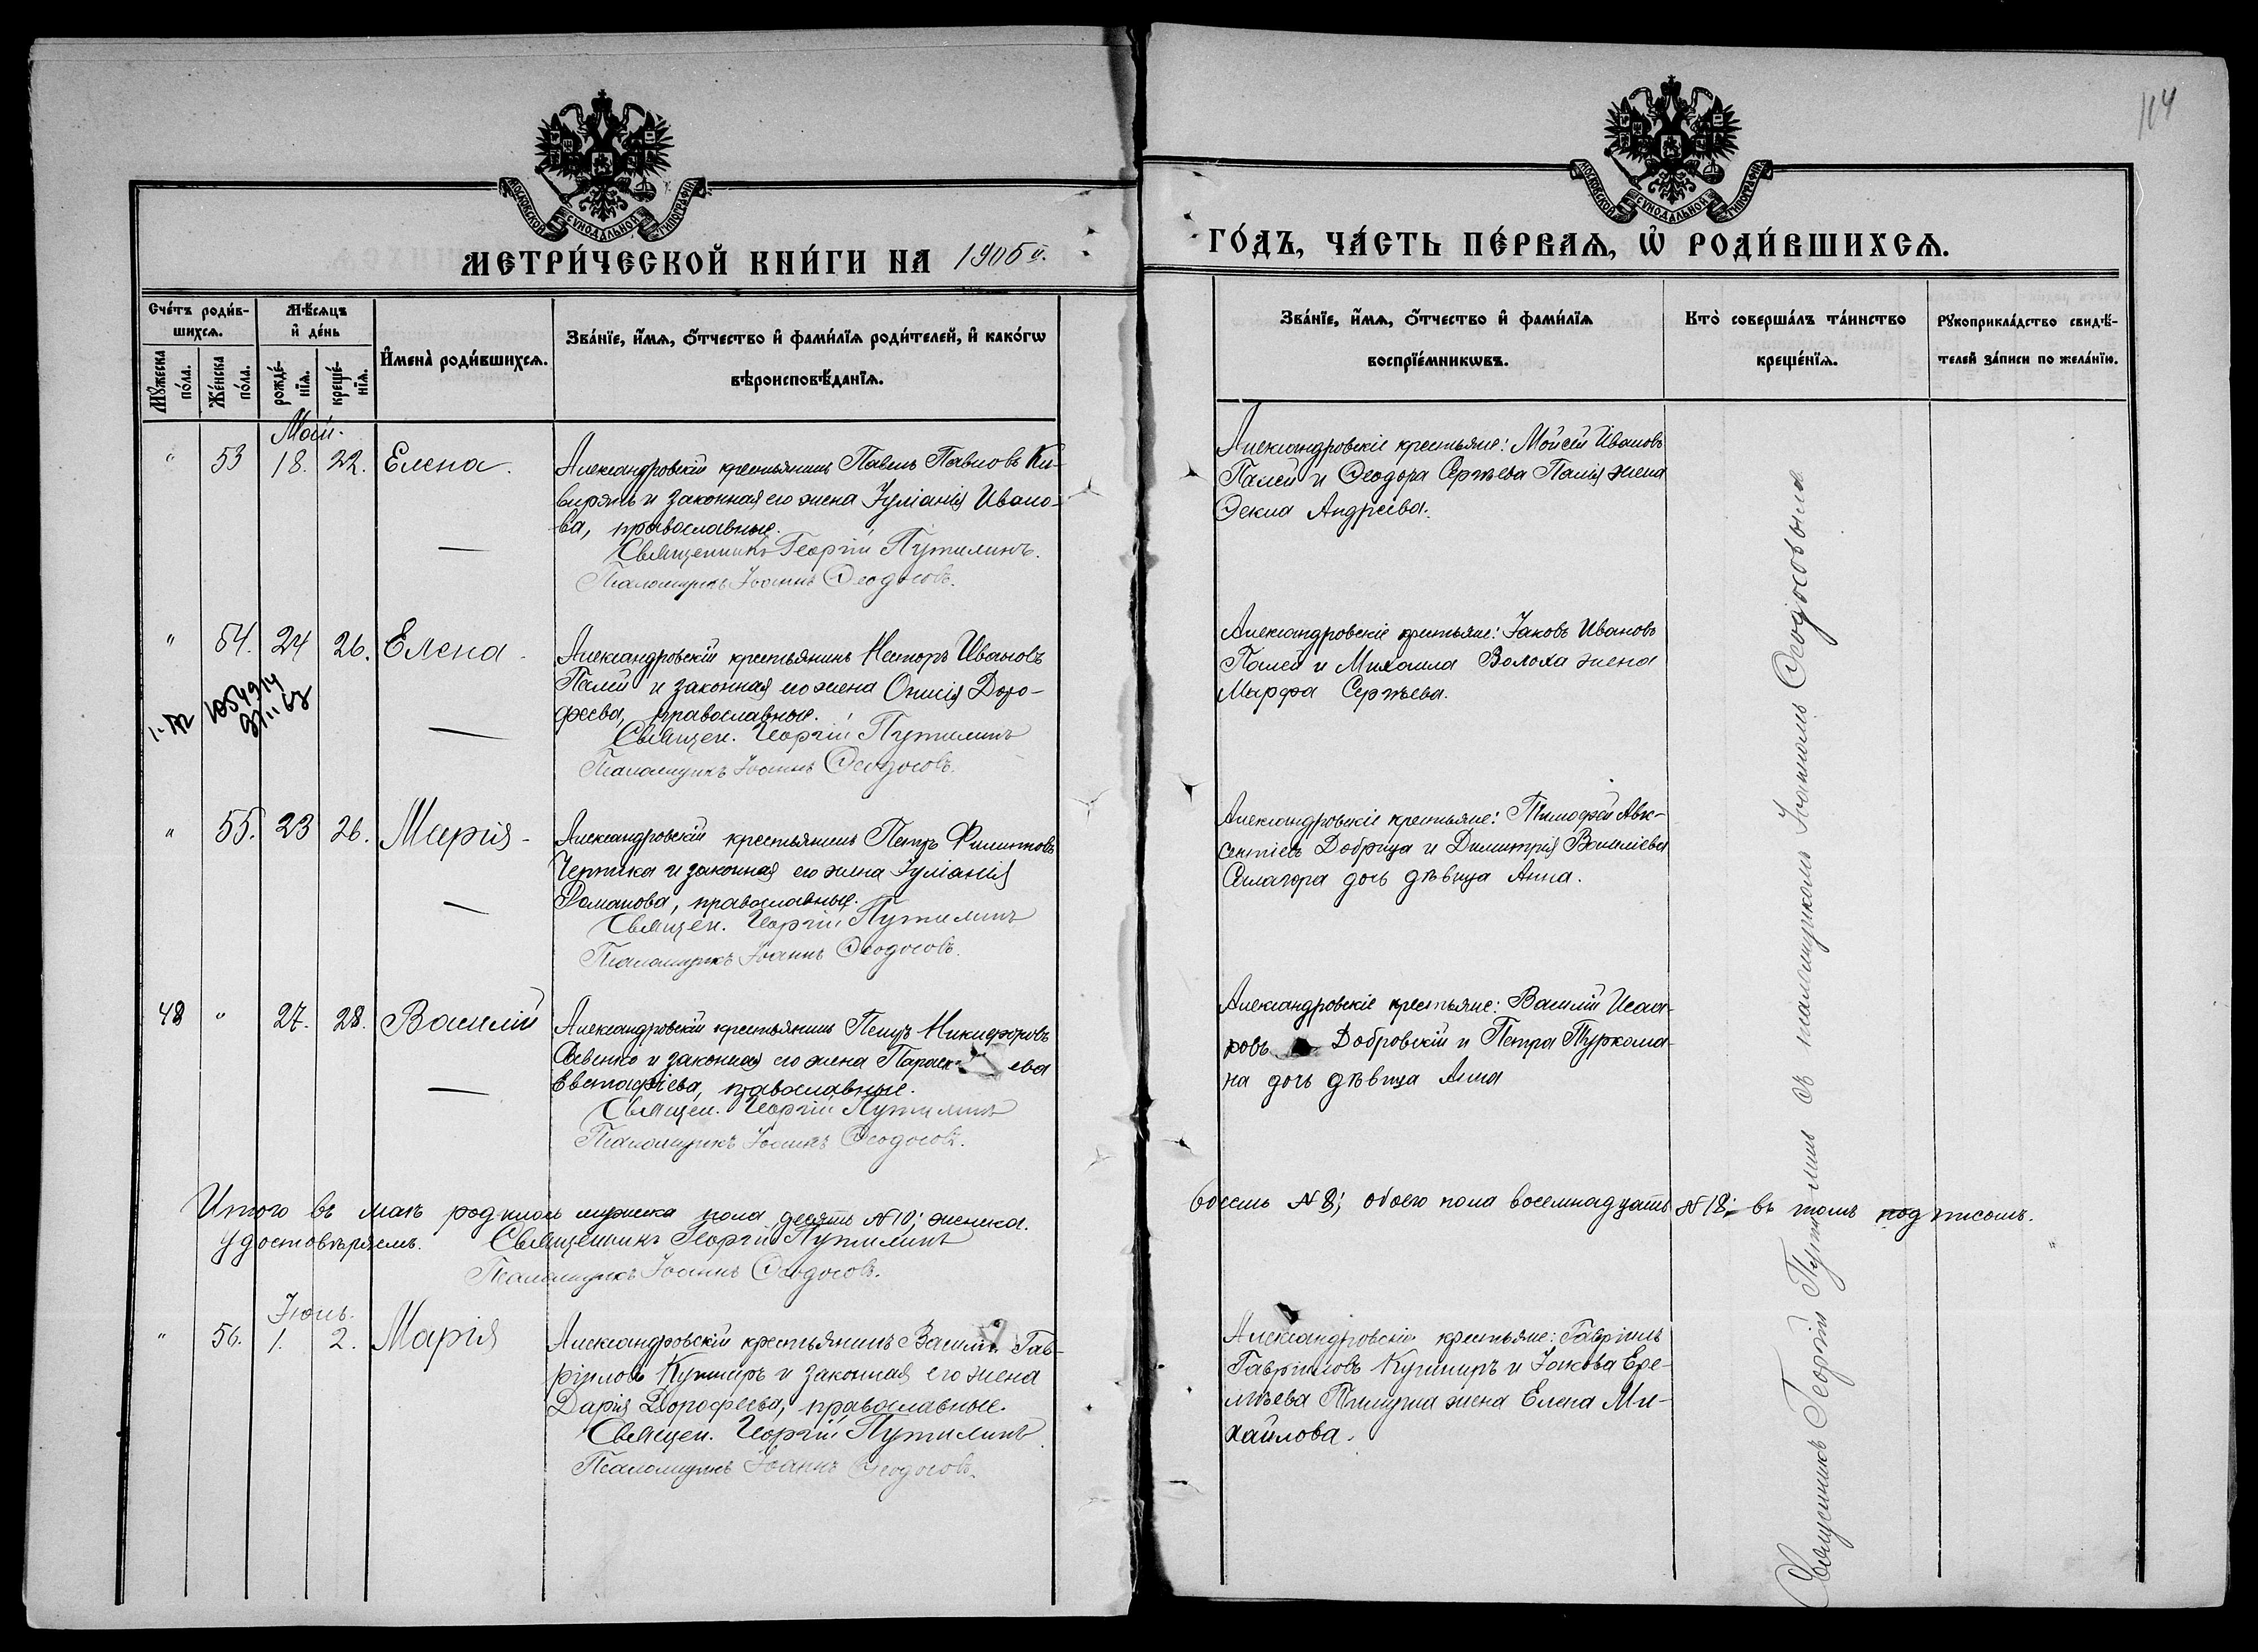 104
МОСКОВСКОЙ СѴНОДАЛЬНОЙ ТИПОГРАФІИ
МОСКОВСКОЙ СѴНОДАЛЬНОЙ ТИПОГРАФІИ
МЕТРИ́ЧЕСКОЙ КНИ́ГИ НА 1905й.
ГО́ДЪ, ЧА́СТЬ ПЕ́РВАЯ, Ѽ РОДИ́ВШИХСЯ.
Сче́тъ роди́в-
шихся.
Мꙋ́жеска
по́ла.
Же́нска
по́ла.
Мѣ́сяцъ
и҆ де́нь
рожде́-
нїя.
креще́-
нїя.
И҆мена̀ роди́вшихся.
Зва́нїе, и҆́мя, ѻ҆́тчество и҆ фами́лїя роди́телей, и҆ како́гѡ
вѣроисповѣ́данїя.
Зва́нїе, и҆́мя, ѻ҆́тчество и҆ фами́лїя
воспрїе́мникѡвъ.
Кто̀ соверша́лъ та́инство
креще́нїя.
Рꙋкоприкла́дство свидѣ́-
телей за́писи по жела́нїю.
Май.
" 53 18. 22. Елена.
Александровскій крестьянинъ Павелъ Павловъ Ки-
вирянъ и законная его жена Іуліанія Ивано-
ва, православные.
Священникъ Георгій Путилинъ.
Псаломщикъ Іоаннъ Ѳеодосовъ.
Александровскіе крестьяне: Мойсей Ивановъ
Палей и Ѳеодора Сергѣева Палія жена
Ѳекла Андреева.
" 54. 24 26. Елена.
Александровскій крестьянинъ Несторъ Ивановъ
Палей и законная его жена Онисія Доро-
феева, православные.
Священ. Георгій Путилинъ
Псаломщикъ Іоаннъ Ѳеодосовъ.
Александровскіе крестьяне: Іаковъ Ивановъ
Палей и Михаила Волоха жена
Марфа Сергѣева.
" 55. 23 26. Марія
Александровскій крестьянинъ Петръ Филипповъ
Чептика и законная его жена Іуліанія
Романова, православные.
Священ. Георгій Путилинъ
Псаломщикъ Іоаннъ Ѳеодосовъ.
Александровскіе крестьяне: Тимофей Авк-
сентіевъ Добрица и Димитрія Василіева
дочь дѣвица Анна.
48 " 27. 28. Василій
Александровскій крестьянинъ Петръ Никифоровъ
Шевенко и законная его жена Параскева
Евстафіева, православные.
Священ. Георгій Путилинъ
Псаломщикъ Іоаннъ Ѳеодосовъ.
Александровскіе крестьяне: Василій Иса-
ковъ Добровскій и Петра Туркома-
на дочь дѣвица Анна
Итого въ маѣ родилось мужска пола десять № 10; женска
восемь № 8; обоего пола восемнадцать № 18; въ томъ подписомъ.
удостовѣряемъ. Священникъ Георгій Путилинъ
Псаломщикъ Іоаннъ Ѳеодосовъ.
Іюнь.
" 56. 1. 2. Марія
Александровскій крестьянинъ Василій Гав-
ріиловъ Кушниръ и законная его жена
Дарія Дорофеева, православные.
Священ. Георгій Путилинъ
Псаломщикъ Іоаннъ Ѳеодосовъ.
Александровскіе крестьяне: Гавріилъ
Гавріиловъ Кушниръ и Іакова Ере-
мѣева жена Елена Ми-
хайлова.
Священникъ Георгій Путилинъ съ псаломщикомъ Іоанномъ Ѳеодосовымъ